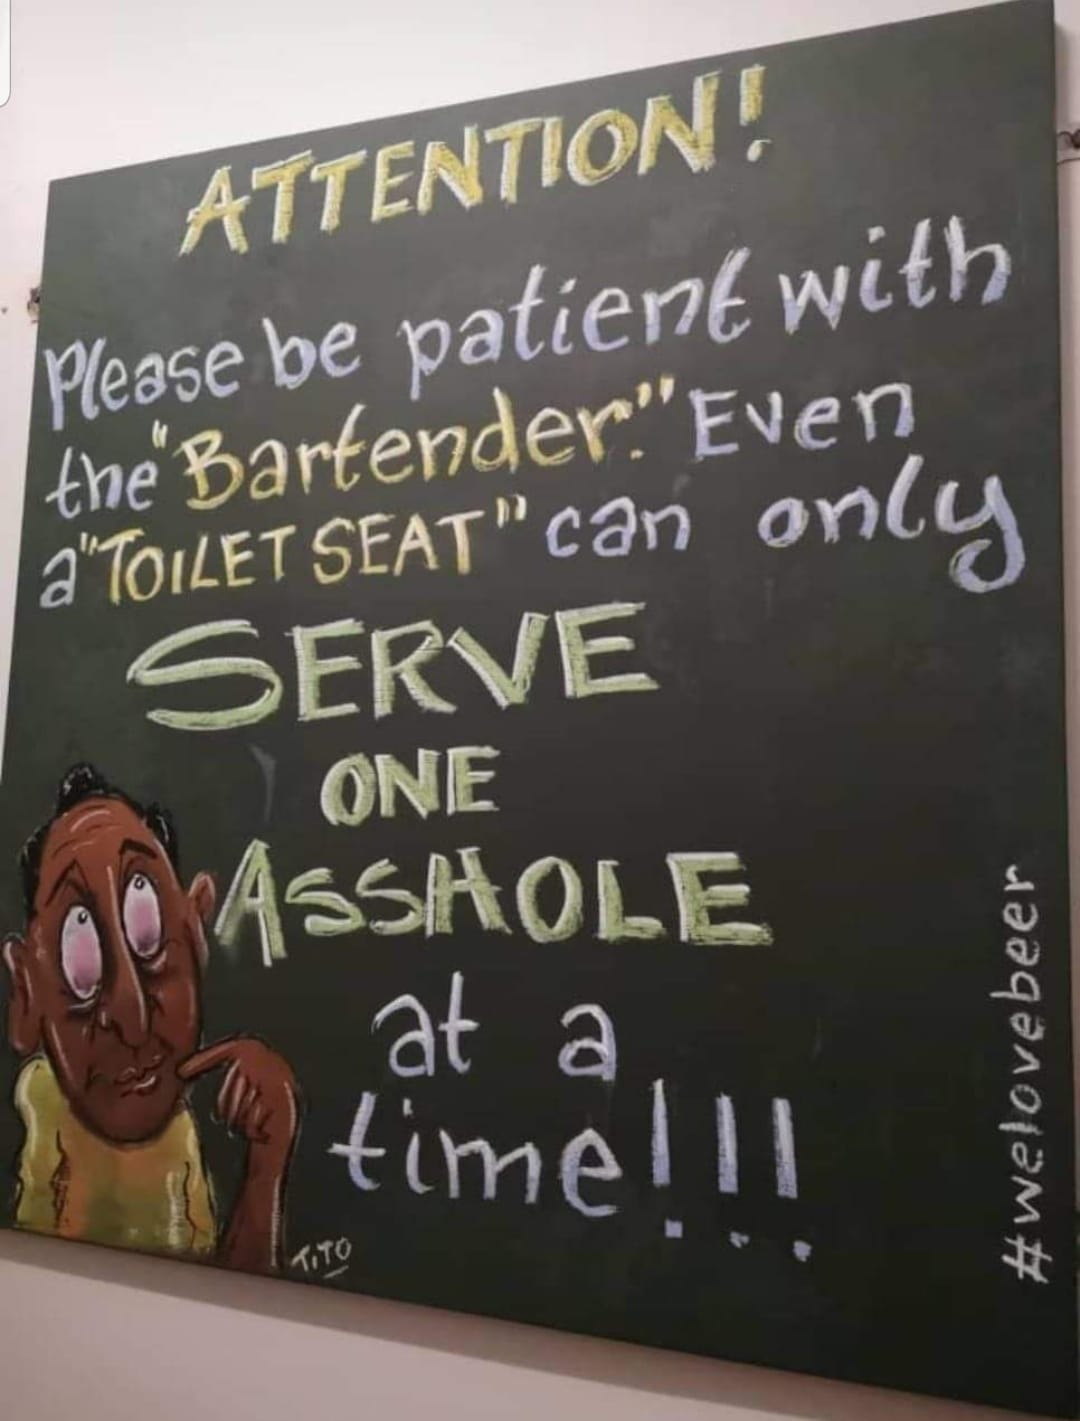 ATTENTION!
Please be patient with
the "Bartender." Even
a "TOILET SEAT" can only
SERVE
ONE
ASSHOLE
at a
time!!!
TITO
#welovebeer